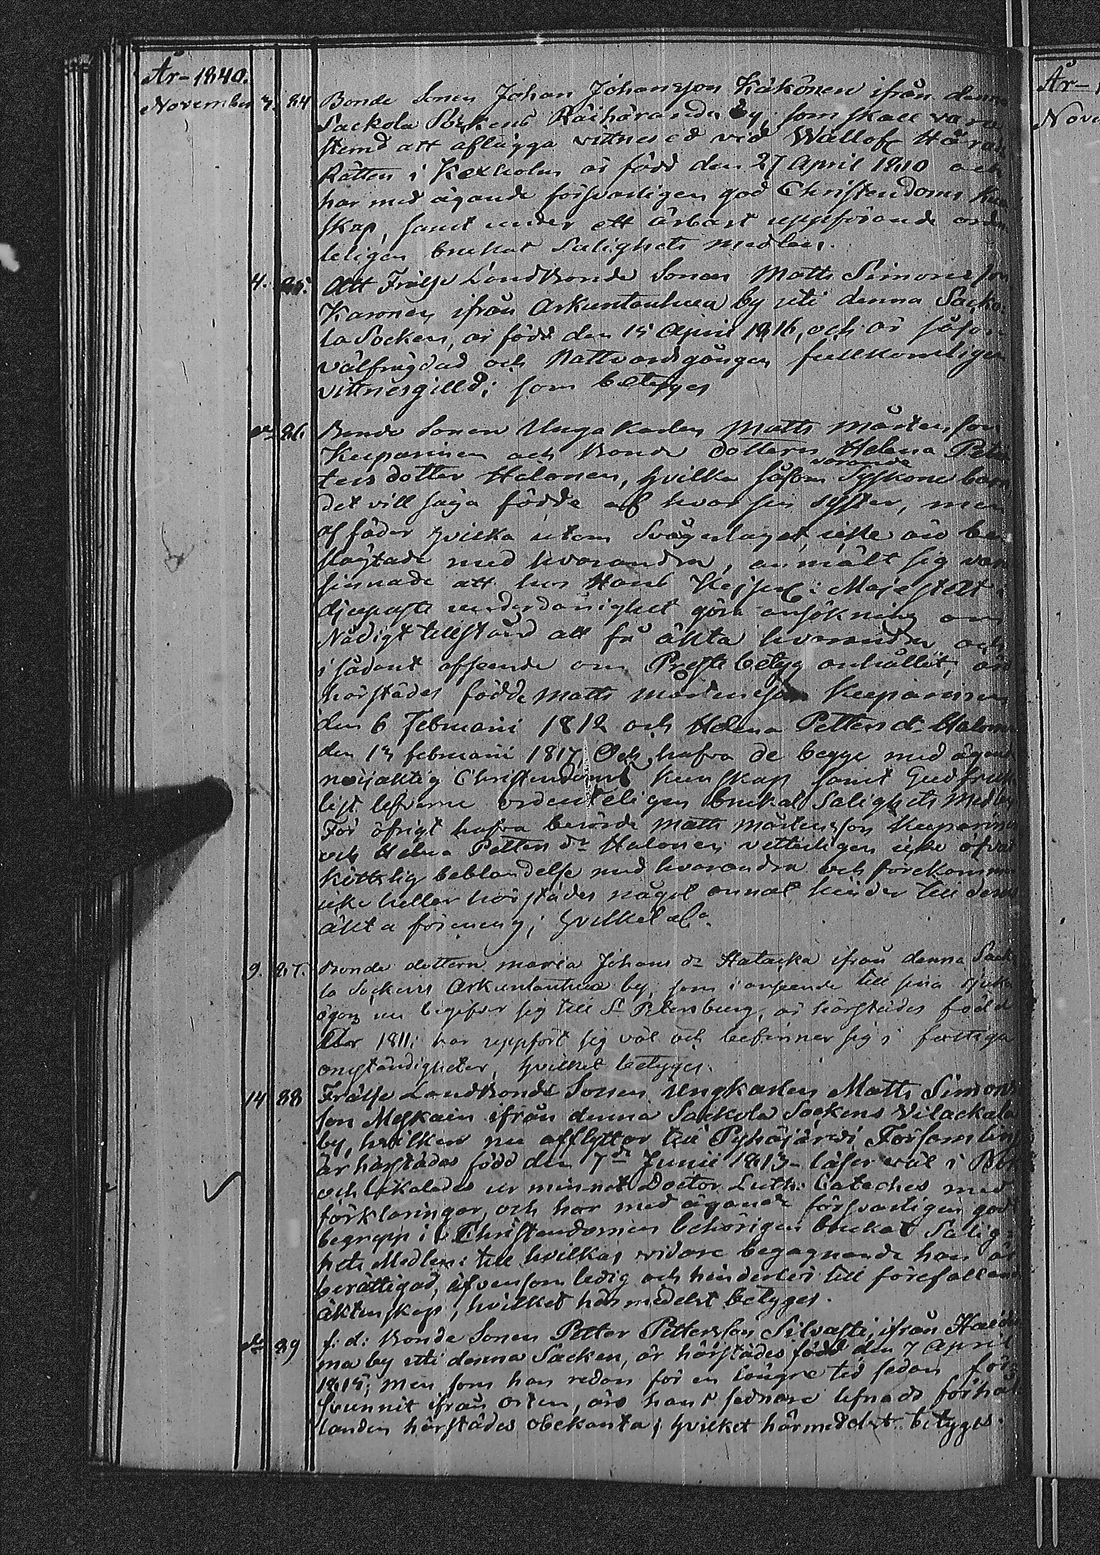 År 1840.
November 3. 84 Bonde Sonen Johan Johansson Käkönen ifrån denna
Sackola Sockens Räihäranda by, som skall vara
stemd att aflägga vittnes ed vid Wallof Härads
Rätten i Kexholm är född den 27 April 1810 och
har med ägande försvarligen god Christendoms kun
skap, samt under ett ärbart uppförande orden
teligen brukat Salighets medlen.
4. 85. Att Frälse Landbonde Sonen Matts Simonsson
Karonen ifrån Arkuntanhua by uti denna Sacko
la Socken, är född den 15 April 1816, och är såsom
välfrägdad och Nattvardsgången fullkomligen
vittnesgilld; som betyges
do 86. Bonde Sonen Ungakarlen Matts Mårtensson
Keeparinen och Bonde dottern Helena Pet
ters dotter Halonen, hvilka såsom varande Syskone barn
det vill säga födde af hvar sin syster, men
af fäder hvilka utom Svågerlaget icke äro be
slägtade med hvarandra, anmält sig vara
sinnade att hos Hans Kejserl: Majestätt i
djupaste underdånighet göra ansökning om
Nådigt tillstånd att få äkta hvarandra och
i sådant afseende om Preste betyg anhållit, äro
härstädes födde Matts Mårtensson Keeparinen
den 6 Februarii 1812 och Helena Petters dr Halonen
den 13 februarii 1817. Och hafva de begge med ägande
nöjaktig Christendoms kunskap samt Gudfruk
ligt lefverne ordenteligen brukat Salighets Medlen
För öfrigt hafva berörde Matts Mårtensson Keeparinen
och Helena Petters dr Halonen vetterligen icke öfvat
köttslig beblandelse med hvarandra och förekommer
icke heller härstädes något annat hinder till deras
äkta förening; hvilket
9. 87. Bonde dottern Maria Johans dr Hatacka ifrån denna Sacko
la Sockens Arkuntanhua by, som i anseende till sina sjuka
ögon nu begifver sig till St Petersburg, är härstädes född
1811: har uppfört sig väl och befinner sig i fattiga
omständigheter, hvilket betyges.
14 88 Frälse Landbonde Sonen Ungkarlen Matts Simons
son Mykain ifrån denna Sackola Sockens Vilackala
by, hvilken nu afflyttar till Pyhäjärvi Församling
är härstädes född den 7de Junii 1813 läser väl i Bok
och likaledes ur minnet Doctor Luth: Cateches med
förklaringar, och har med ägande försvarligen god
begrepp i Christendomen behörigen brukat Salig
hets Medlen: till hvilkas vidare begagnande han är
berättigad, äfvensom ledig och hinderlös till förefallande
äktenskap, hvilket härmedelst betyges.
do 89 f. d: Bonde Sonen Petter Pettersson Silvasti, ifrån Haide
ma by uti denna Socken, är härstädes född den 7 April
1815; men som han redan för en längre tid sedan för
svunnit ifrån orten, äro hans sednare lefnads förhål
landen härstädes obekanta; hvilket härmedelst betyges.
År 1
Nove